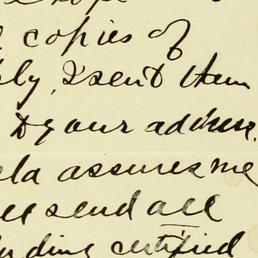 copies of
I sent them
to your address.
assures me
send all
certified